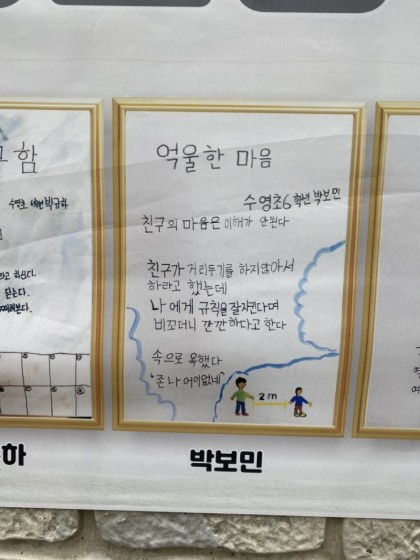 함
억울한 마음
수영초6 학년 박보민
친구의 마음은 이해가 안된다
친구가 거리두기를 하지않아서
하라고 했는데
나 에게 규칙을 잘지킨다며
비꼬더니 깐깐하다고 한다
속으로 욕했다
"존나 어이없네"
2m
하
박보민